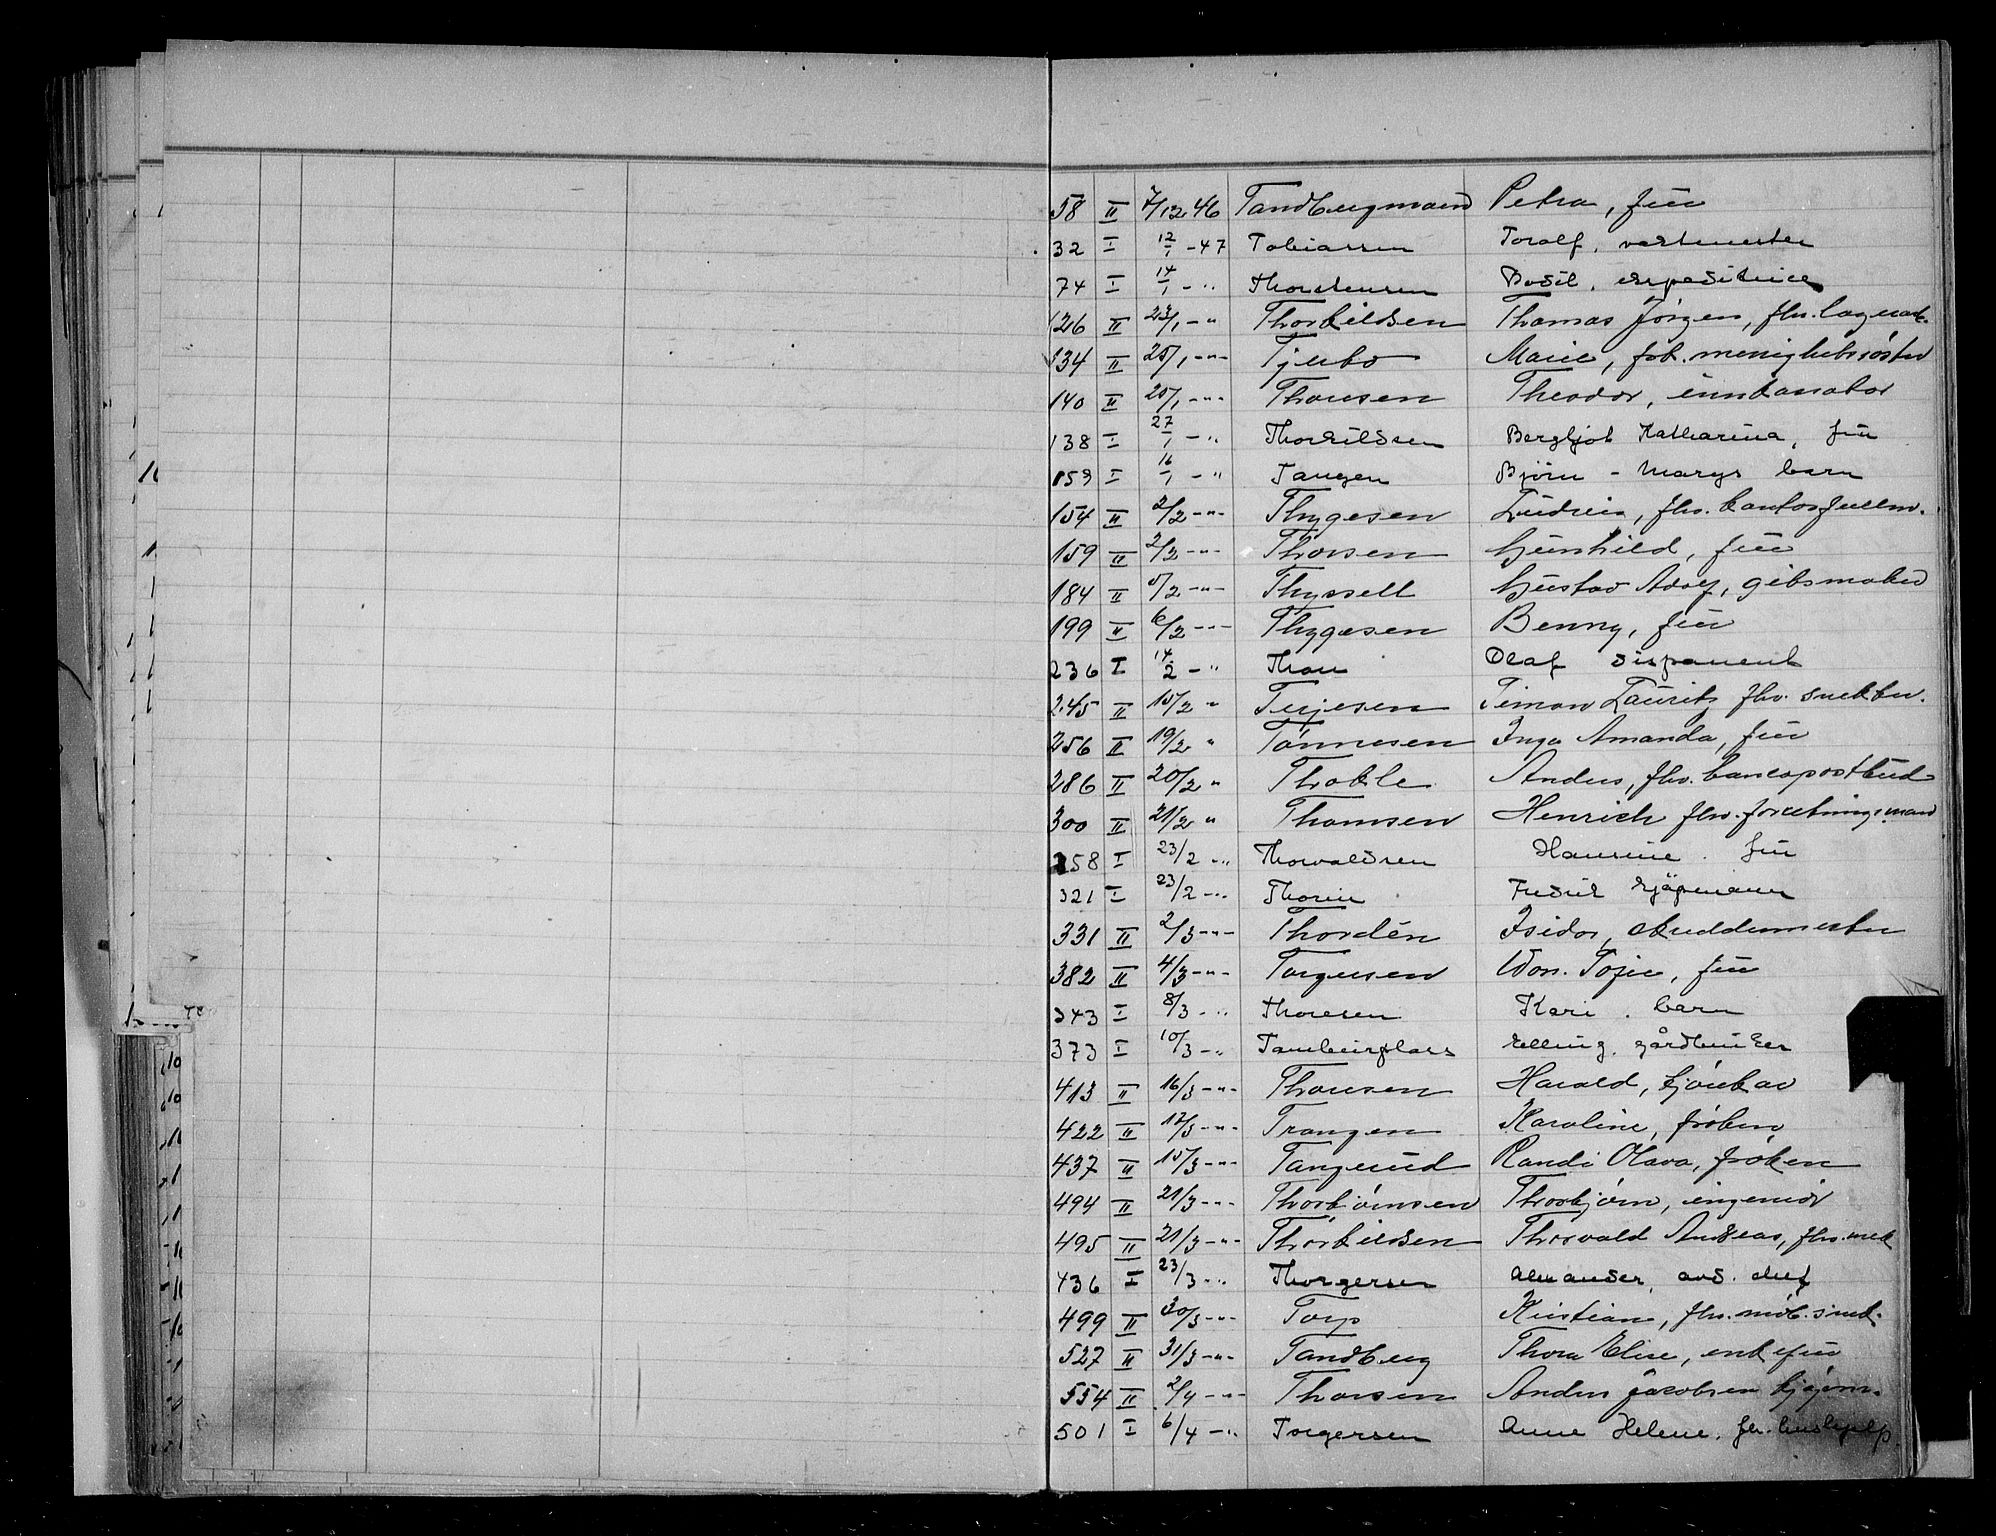 58 II 7/12 46 Tandbergmoen Petra, frü
32 I 12/1 -47 Tobiassen Toralf, verkmester
74 I 14/1 - " Thorstensen Bodil, expeditrice
126 II 23/1 - " Thorkildsen Thomas Jörgen, fhv. lagerarb.
134 II 25/1 - " - Tjerbo Marie, fhv. menighetssöster
140 II 25/1 - " - Thorsen Theodor,
138 I 27/1 - " Thorkildsen Bergljot Katharina, frü
153 I 16/1 - " Tangen Björn - Marys barn
154 II 2/2 - " - Thygesen fhv. kontorfullm.
159 II 2/2 - " - Thorsen Günhild, frü
184 II 5/2 - " - Thyssell Güstav Adolf, gibsmaker
199 II 6/2 - " - Thygesen Benny, frü
236 I 14/2 - " Thon Olaf disponent
245 II 15/2 " Terjesen Timan Lauritz fhv. snekker.
256 II 19/2 " Tönnesen Inga Amanda, frü
286 II 20/2 " Thokle Anders, fhv. bancopostbud
300 II 21/2 " Thomsen Henrich fhv. forretningsmand
258 I 23/2 - " Thorvaldsen Hansine. frü
321 I 23/2 - " Thorin Fredrik kjöpmann
331 II 2/3 - " - Thordén Isidor, skreddermester
382 II 4/3 - " - Torgersen frü
343 I 8/3 - " Thoresen Kari. barn
373 I 10/3 - " Tambürplass Elling. gårdbruker
413 II 16/3 - " - Thorsen Harald,
422 II 17/3 - " - Trangen Karoline, fröken
437 II 15/3 - " - Tangerud Randi Olava, fröken
494 II 21/3 - " - Thorbjörnsen Thorbjörn, ingeniör
495 II 21/3 - " - Thorkildsen Thorvald Andreas, fhv. mek
436 I 23/3 - " Thorgersen Alexander, avd. chef
499 II 30/3 - " - Torp Kristian, fhv. möb. sned.
527 II 31/3 - " - Tandberg Thora Elise, enkefrü
554 II 2/4 - " - Thorsen Anders Jacobsen kjöpm.
501 I 6/4 - " Torgersen Anne Helene, fhv. hushjelp.